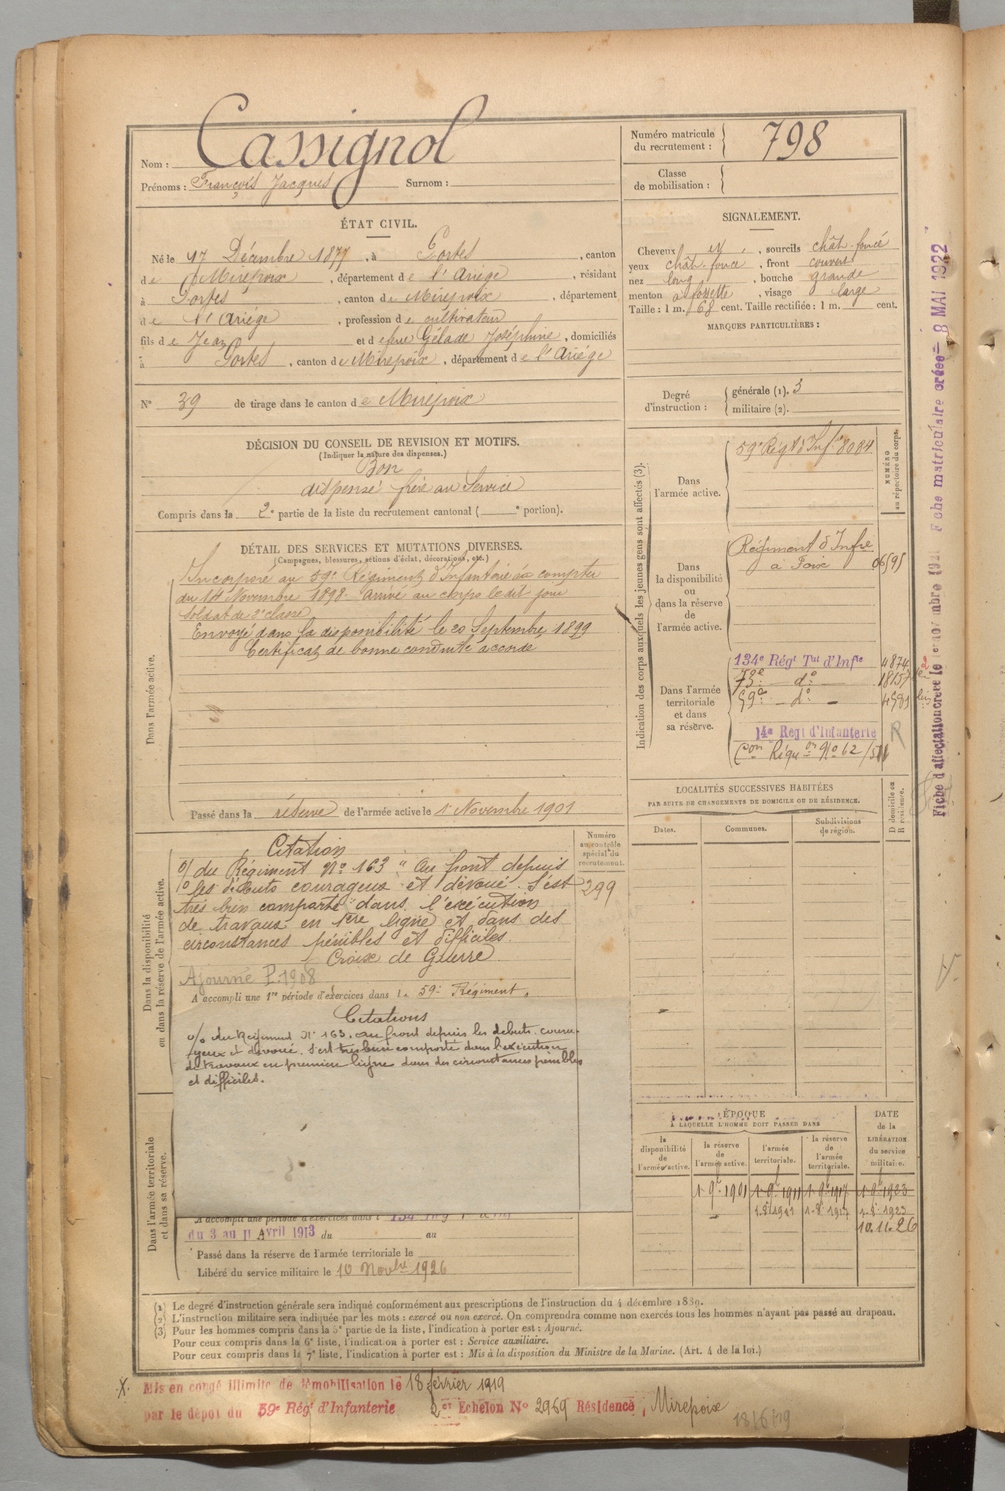 Nom : Cassignol
Prénoms : François Jacques Surnom :
Numéro matricule du recrutement : 798
Classe de mobilisation :
ÉTAT CIVIL.
Né le 17 Décembre 1877, à Portes, canton
de Mirepoix, département de l'Ariège, résidant
à Portes, canton de Mirepoix, département
de l'Ariège, profession de cultivateur
fils de Jean et de feue Gélade Joséphine, domiciliés
à Portes, canton de Mirepoix, département de l'Ariège
N° 39 de tirage dans le canton de Mirepoix
SIGNALEMENT.
Cheveux et, sourcils chât. foncé
yeux chât. foncé, front couvert
nez long, bouche grande
menton à fossette, visage large
Taille : 1 m. 68 cent. Taille rectifiée : 1 m. cent.
MARQUES PARTICULIÈRES :
Degré d'instruction : générale (1). 3
militaire (2).
DÉCISION DU CONSEIL DE REVISION ET MOTIFS.
(Indiquer la nature des dispenses.)
Bon
dispensé frère au Service
Compris dans la 2e partie de la liste du recrutement cantonal ( e portion).
DÉTAIL DES SERVICES ET MUTATIONS DIVERSES.
(Campagnes, blessures, actions d'éclat, décorations, etc.)
Dans l'armée active.
Incorporé au 59e Régiment d'Infanterie à compter
du 14 Novembre 1898. Arrivé au corps le dit jour
soldat de 2e classe
Envoyé dans la disponibilité le 20 Septembre 1899
Certificat de bonne conduite accordé
Passé dans la réserve de l'armée active le 1 Novembre 1901
Indication des corps auxquels les jeunes gens sont affectés (3).
NUMÉRO au répertoire du corps.
Dans l'armée active.
59e Régt d'Infie 8084
Dans la disponibilité ou dans la réserve de l'armée active.
Régiment d'Infie
à Foix 06595
Dans l'armée territoriale et dans sa réserve.
134e Régt Tal d'Infie 4874
73e do
59e do 4581
14e Régt d'Infanterie R
LOCALITÉS SUCCESSIVES HABITÉES
PAR SUITE DE CHANGEMENTS DE DOMICILE OU DE RÉSIDENCE.
Dates. Communes. Subdivisions de région. D domicile ou R résidence.
Dans la disponibilité ou dans la réserve de l'armée active.
Numéro au contrôle spécial du recrutement.
299
Citation
o/ du Régiment No 163 "Au front depuis
les débuts courageux et dévoué s'est
très bien comporté dans l'exécution
de travaux en 1ère ligne et dans des
circonstances pénibles et difficiles.
Croix de Guerre
Ajourné P. 1908
A accompli une 1re période d'exercices dans le 59e Régiment.
Citations
o/o du Régiment No 163. au front depuis les débuts. coura-
geux et dévoué. S'est très bien comporté dans l'exécution
de travaux en première ligne dans des circonstances pénibles
et difficiles.
Dans l'armée territoriale et dans sa réserve.
A accompli une période d'exercices dans l
du 3 au 11 Avril 1913 du au
Passé dans la réserve de l'armée territoriale le
Libéré du service militaire le 10 Novbre 1926
ÉPOQUE
A LAQUELLE L'HOMME DOIT PASSER DANS
la disponibilité de l'armée active. la réserve de l'armée active. l'armée territoriale. la réserve de l'armée territoriale.
DATE de la LIBÉRATION du service militaire.
1-9bre 1901 1-9bre 1911 1-9bre 1917 1-9bre 1923
1-8bre 1911 1-8bre 1917 1-8bre 1923
10.11.26
(1) Le degré d'instruction générale sera indiqué conformément aux prescriptions de l'instruction du 4 décembre 1889.
(2) L'instruction militaire sera indiquée par les mots : exercé ou non exercé. On comprendra comme non exercés tous les hommes n'ayant pas passé au drapeau.
(3) Pour les hommes compris dans la 5e partie de la liste, l'indication à porter est : Ajourné.
Pour ceux compris dans la 6e liste, l'indication à porter est : Service auxiliaire.
Pour ceux compris dans la 7e liste, l'indication à porter est : Mis à la disposition du Ministre de la Marine. (Art. 4 de la loi.)
Mis en congé illimité de démobilisation le 18 février 1919
par le dépôt du 59e Régt d'Infanterie 2er Echelon No 2969 Résidence, Mirepoix
18/6/19
Fiche matriculaire créée 8 MAI 1922